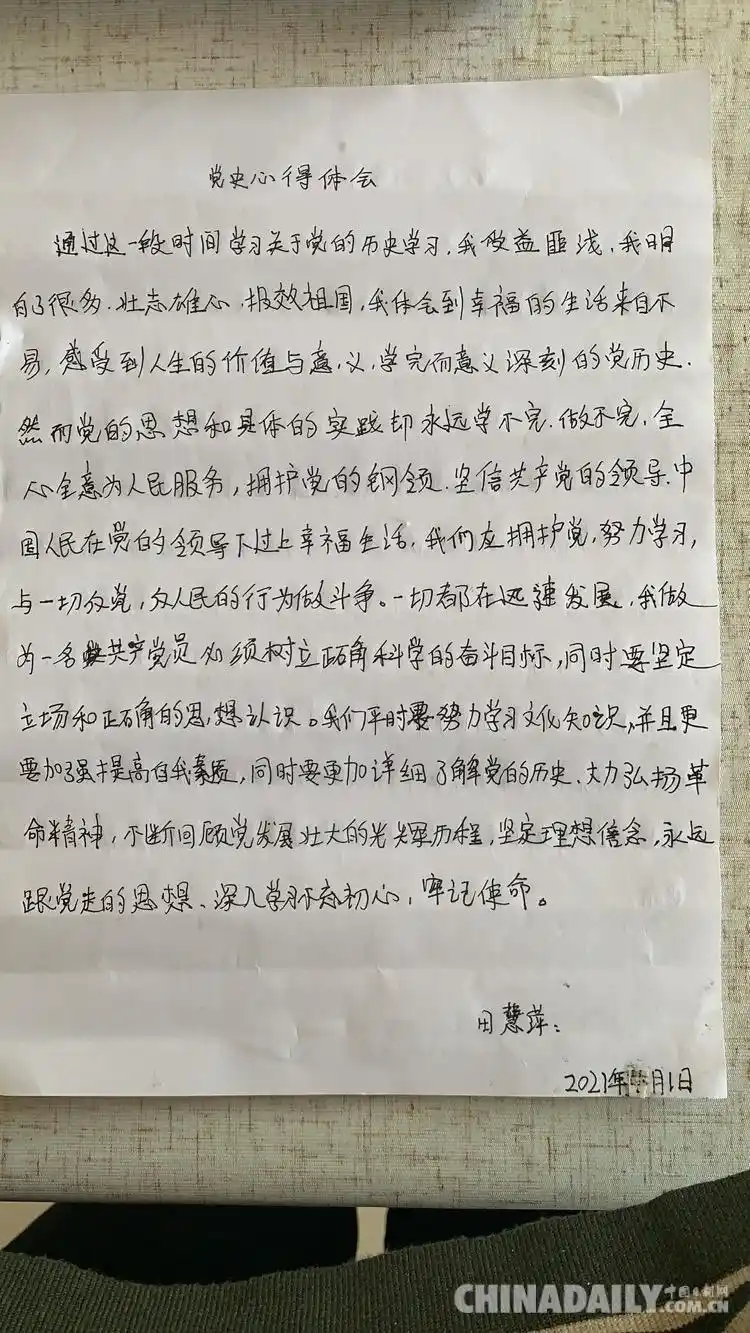 党史心得体会
通过这一段时间学习关于党的历史学习，我收益匪浅，我明
白了很多．壮志雄心．报效祖国，我体会到幸福的生活来自不
易，感受到人生的价值与意．义．学完而意义深刻的党历史．
然而党的思想和具体的实践却永远学不完．做不完．全
心全意为人民服务，拥护党的钢领．坚信共产党的领导．中
国人民在党的领导下过上幸福生活．我们应拥护党，努力学习，
与一切反党，反人民的行为做斗争。一切都在迅速发展，我做
为一名共产党员必须树立正确科学的奋斗目标，同时要坚定
立场和正确的思想认识。我们平时要努力学习文化知识，并且更
要加强提高自我素质，同时要更加详细了解党的历史、大力弘扬革
命精神，不断回顾党发展壮大的光辉历程，坚定理想信念，永远
跟党走的思想、深入学习不忘初心，牢记使命。
田慧萍：
2021年月1日
CHINADAILY 中国日报网
.COM.CN